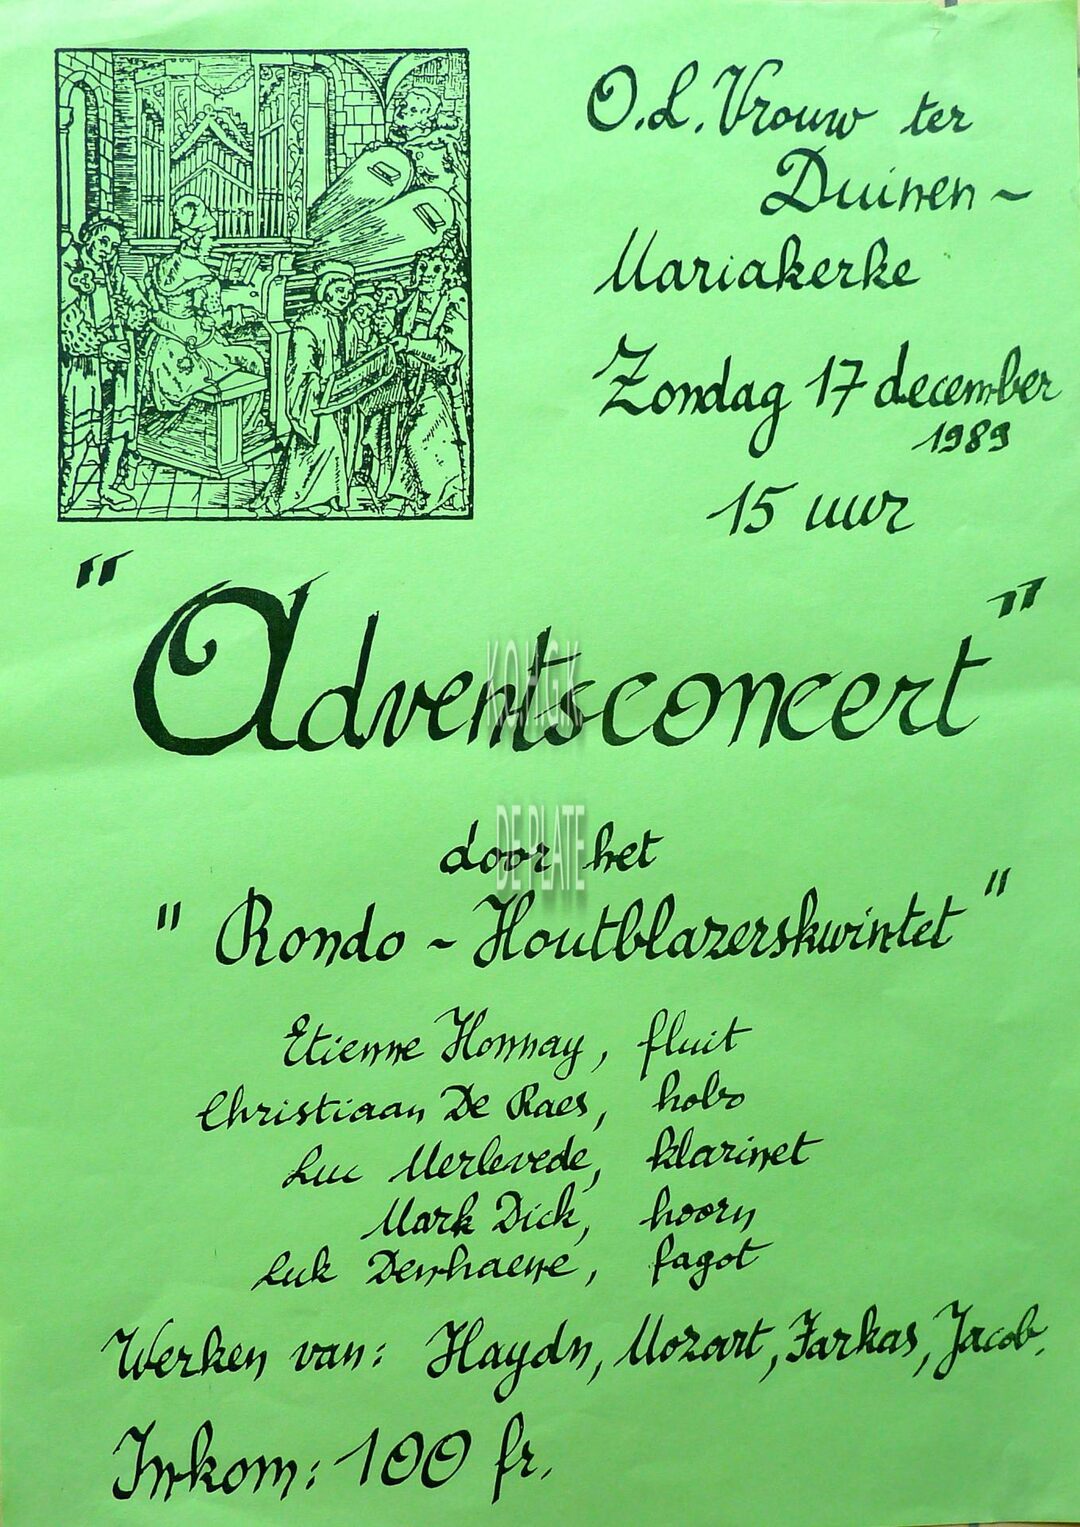 O.L. Vrouw ter
Duinen -
Mariakerke
Zondag 17 december
1989
15 uur
"Adventsconcert"
door het
"Rondo - Houtblazerskwintet"
Etienne Honnay, fluit
Christiaan De Raes, hobo
Luc Merlevede, klarinet
Mark Dick, hoorn
Luk Denhaene, fagot
Werken van: Haydn, Mozart, Farkas, Jacob.
Inkom: 100 fr.
DE PLATE